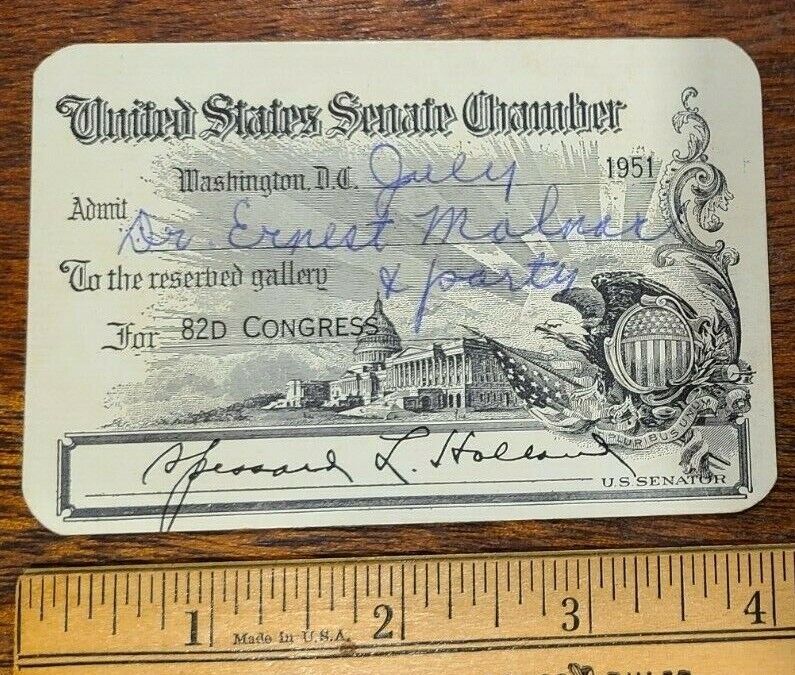 United States Senate Chamber
Washington, D.C. July 1951
Admit Dr. Ernest Molnar
To the reserved gallery & party
For 82D CONGRESS
PLURIBUS UNUM
Spessard L. Holland
U.S. SENATOR
1 2 3 4
Made in U.S.A.